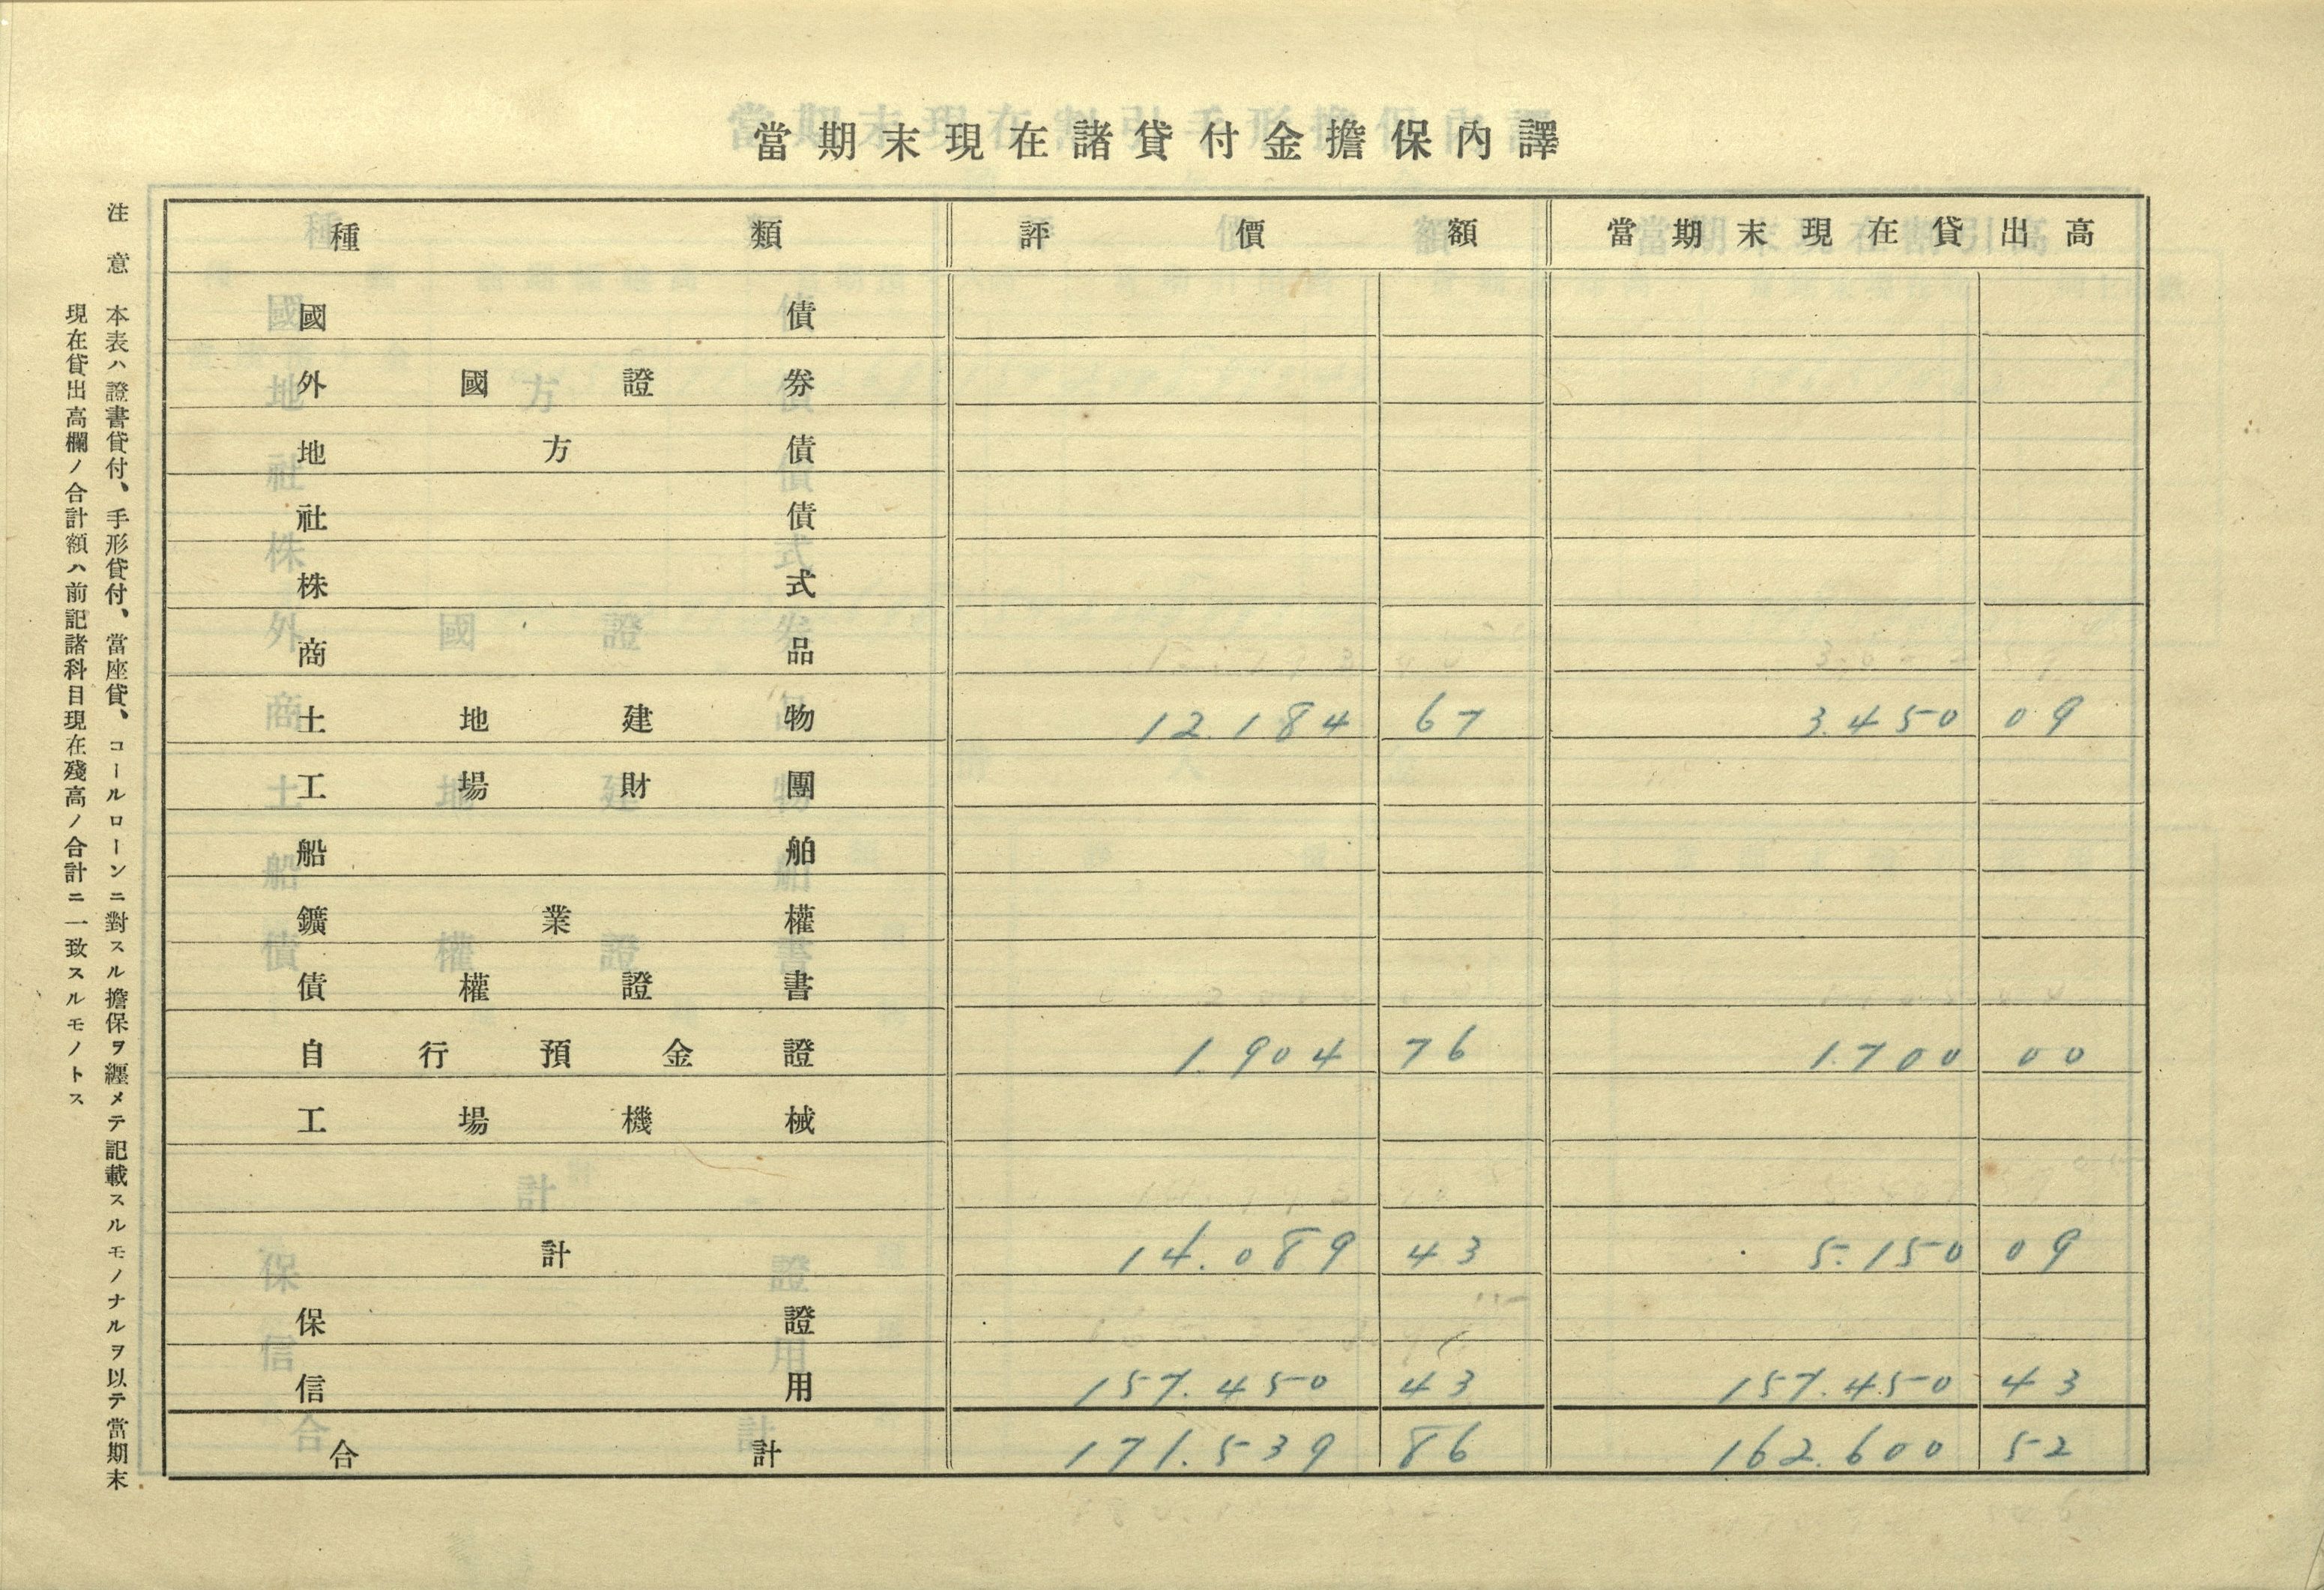 當期末現在諸貸付金擔保內譯
種類 評價額 當期末現在貸出高
國債
外國證券
地方債
社債
株式
商品
土地建物 12.184 67 3.450 09
工場財團
船舶
鑛業權
債權證書
自行預金證 1.904 76 1.700 00
工場機械
計 14.089 43 5.150 09
保證
信用 157.450 43 157.450 43
合計 171.539 86 162.600 52
注意 本表ハ證書貸付、手形貸付、當座貸、コールローンニ對スル擔保ヲ纒メテ記載スルモノナルヲ以テ當期末
現在貸出高欄ノ合計額ハ前記諸科目現在殘高ノ合計ニ一致スルモノトス